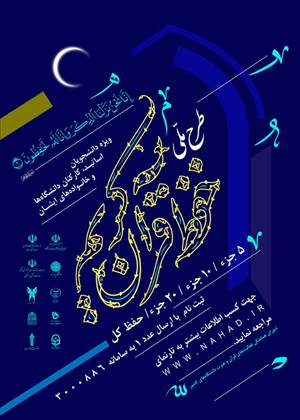 إِنَّا نَحْنُ نَزَّلْنَا الذِّكْرَ وَإِنَّا لَهُ لَحَافِظُونَ
طرح ملی
حفظ قرآن کریم
ویژه دانشجویان
اساتید، کارکنان دانشگاه‌ها
و خانواده‌های ایشان
۵ جزء / ۱۰ جزء / ۲۰ جزء / حفظ کل
ثبت نام با ارسال عدد ۱ به سامانه ۳۰۰۰۸۸۶
جهت کسب اطلاعات بیشتر به تارنمای
WWW.NAHAD.IR
مراجعه نمایید.